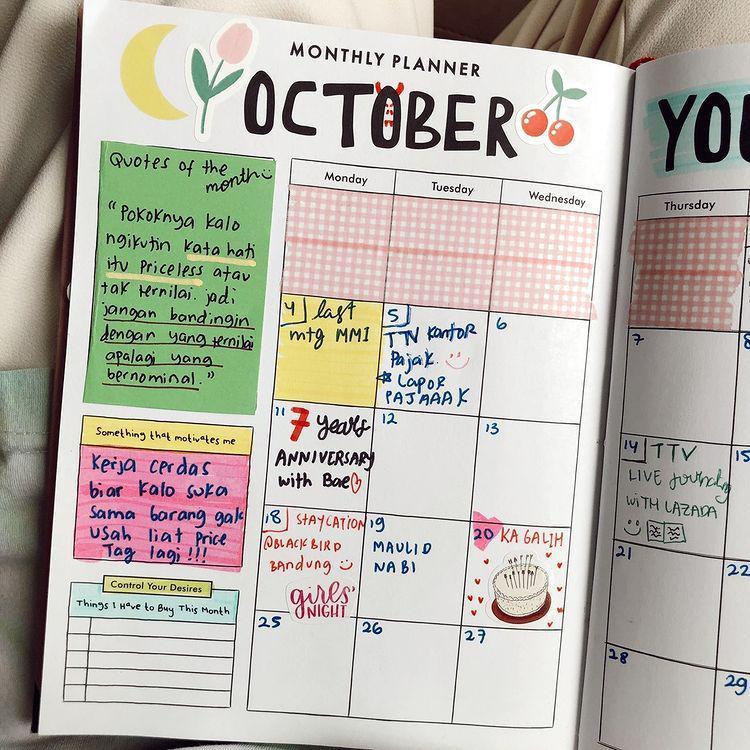 MONTHLY PLANNER
OCTOBER
YOU
Quotes of the
month
"Pokoknya kalo
ngikutin kata hati
itu priceless atau
tak ternilai. jadi
jangan bandingin
dengan yang ternilai
apalagi yang
bernominal."
Something that motivates me
Kerja cerdas
biar kalo suka
sama barang gak
usah liat price
Tag lagi!!!
Control Your Desires
Things I Have to Buy This Month
Monday
Tuesday
Wednesday
Thursday
4 last
mtg MMI
5
TTV Kantor
Pajak
Lapor
PAJAAAK
6
7
8
11 7 years
ANNIVERSARY
with Bae
12
13
14 TTV
LIVE Journaling
WITH LAZADA
15
18 STAYCATION
@BLACKBIRD
Bandung
girls'
NIGHT
19
MAULID
NABI
20 KA GALIH
HAPPY
21
22
25
26
27
28
29